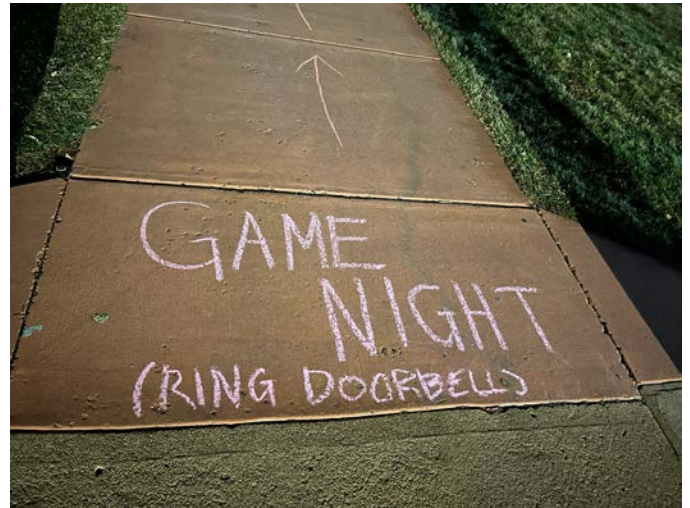 GAME
NIGHT
(RING DOORBELL)